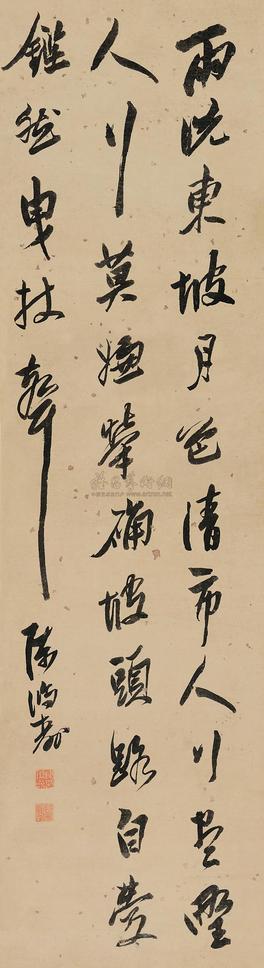 雨洗東坡月色清市人行盡野
人行莫嫌犖确坡頭路自愛
鏗然曳杖聲
陳鴻壽